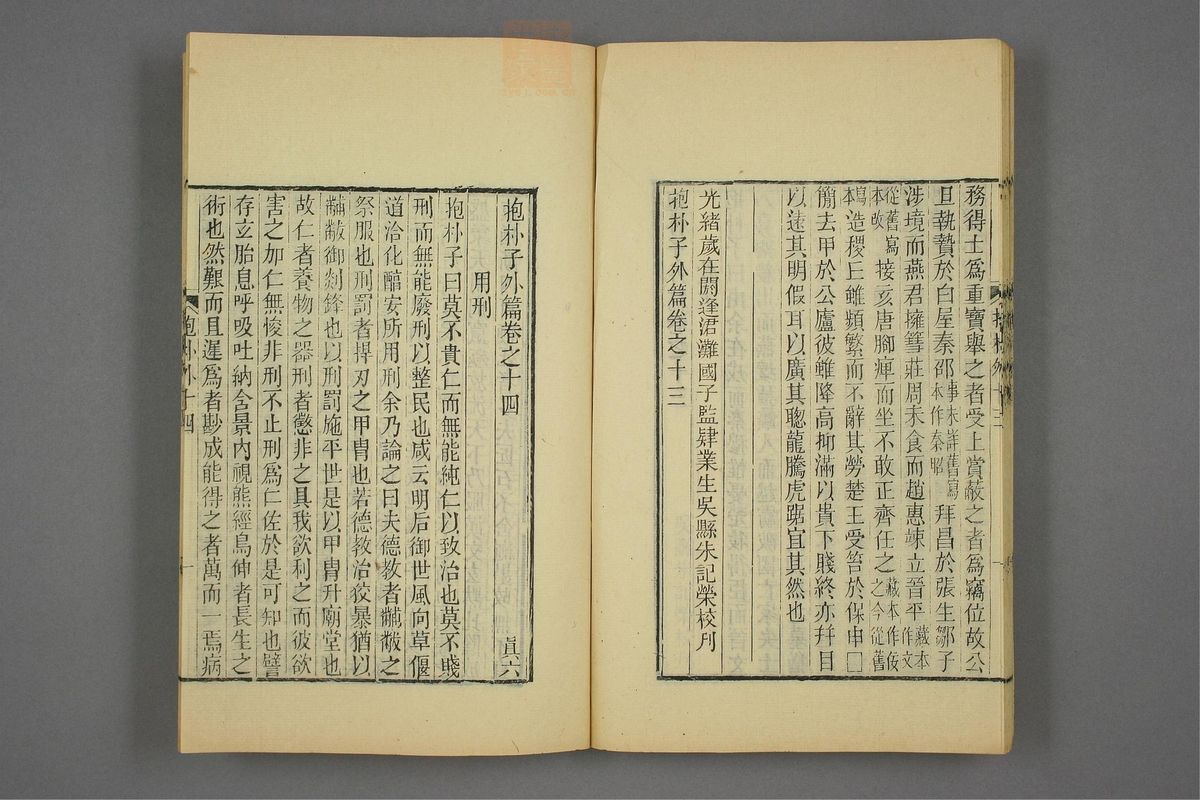 務得士爲重寶舉之者受上賞蔽之者爲竊位故公
旦執贄於白屋秦邵事朱筆舊寫本作秦昭拜昌於張生鄒子
涉境而燕君擁篲莊周未食而趙惠竦立晉平藏本作文
從舊寫本改接亥唐腳痺而坐不敢正齊任之藏本作佞之今從舊
寫本造稷丘雖頻繁而不辭其勞楚王受笞於保申□
簡去甲於公廬彼雖降高抑滿以貴下賤終亦幷目
以遠其明假耳以廣其聰龍騰虎踞宜其然也
光緒歲在閼逢涒灘國子監肄業生吳縣朱記榮校刋
抱朴子外篇卷之十三
抱朴子外篇卷之十四 眞六
用刑
抱朴子曰莫不貴仁而無能純仁以致治也莫不賤
刑而無能廢刑以整民也咸云明后御世風向草偃
道洽化醇安所用刑余乃論之曰夫德教者黼黻之
祭服也刑罰者捍刃之甲冑也若德教治狡暴猶以
黼黻御剡鋒也以刑罰施平世是以甲冑升廟堂也
故仁者養物之器刑者懲非之具我欲利之而彼欲
害之加仁無悛非刑不止刑爲仁佐於是可知也譬
存玄胎息呼吸吐納含景內視熊經鳥伸者長生之
術也然艱而且遲爲者尠成能得之者萬而一焉病
抱朴外十四
一